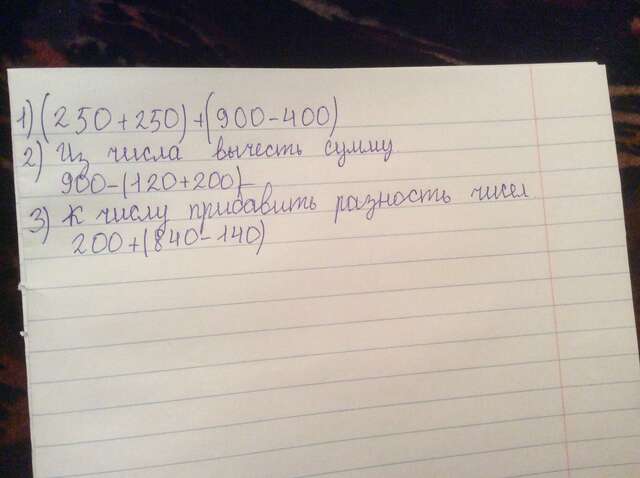 1) (250+250)+(900-400)
2) Из числа вычесть сумму
900-(120+200)
3) К числу прибавить разность чисел
200+(840-140)